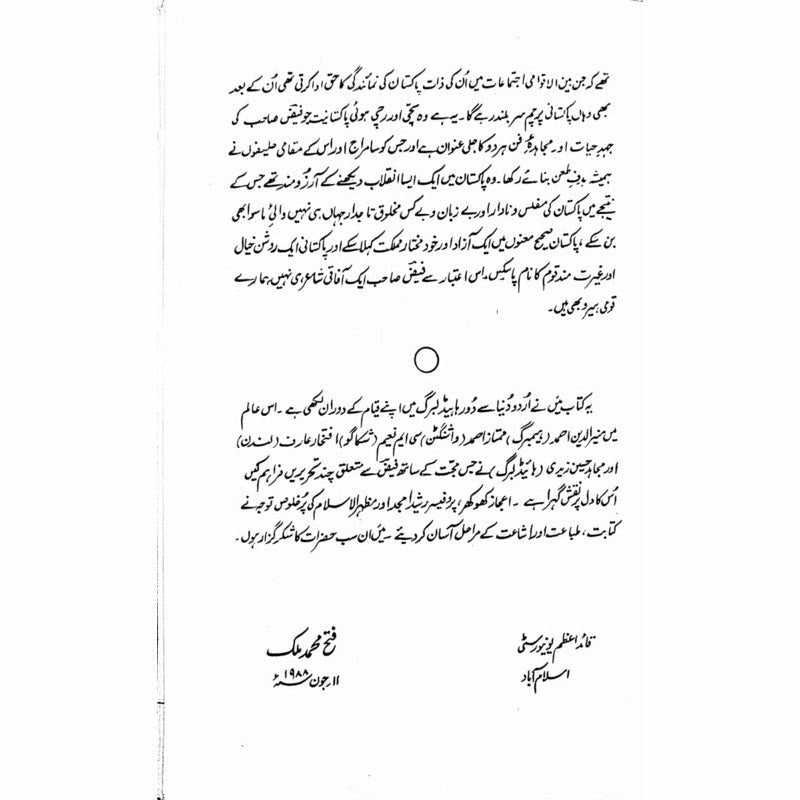 تھے کہ جن بین الاقوامی اجتماعات میں اُن کی ذات پاکستان کی نمائندگی کا حق ادا کرتی تھی اُن کے بعد
بھی وہاں پاکستانی پرچم سربلند رہے گا۔ یہ ہے وہ سچّی اور رچی ہوئی پاکستانیت جو فیض صاحب کی
جہدِ حیات اور مجاہدۂ فن ہر دو کا جلی عنوان ہے اور جس کو سامراج اور اس کے مقامی حلیفوں نے
ہمیشہ ہدفِ طعن بنائے رکھا۔ وہ پاکستان میں ایک ایسا انقلاب دیکھنے کے آرزو مند تھے جس کے
نتیجے میں پاکستان کی مفلس و نادار اور بے زبان و بے کس مخلوق تاجدارِ جہاں ہی نہیں والیِ ماسوا بھی
بن سکے، پاکستان صحیح معنوں میں ایک آزاد اور خود مختار مملکت کہلا سکے اور پاکستانی ایک روشن خیال
اور غیرت مند قوم کا نام پا سکیں۔ اس اعتبار سے فیض صاحب ایک آفاقی شاعر ہی نہیں ہمارے
قومی ہیرو بھی ہیں۔
یہ کتاب میں نے اُردو دُنیا سے دُور ہائیڈلبرگ میں اپنے قیام کے دوران لکھی ہے۔ اس عالم
میں منیر الدین احمد (ہیمبرگ) ممتاز احمد (واشنگٹن) سی ایم نعیم (شکاگو) افتخار عارف (لندن)
اور مجاہد حسین زیدی (ہائیڈلبرگ) نے جس محبّت کے ساتھ فیض سے متعلق چند تحریریں فراہم کیں
اُس کا دل پر نقش گہرا ہے۔ اعجاز کھوکھر، پروفیسر رشید امجد اور مظہر الاسلام کی پُر خلوص توجہ نے
کتابت، طباعت اور اشاعت کے مراحل آسان کر دیئے۔ میں ان سب حضرات کا شکر گزار ہوں۔
قائد اعظم یونیورسٹی
اسلام آباد
فتح محمد ملک
۱۱ جون ۱۹۸۸ء